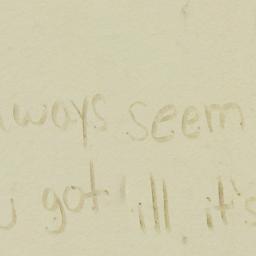 always seem
u got ill it's